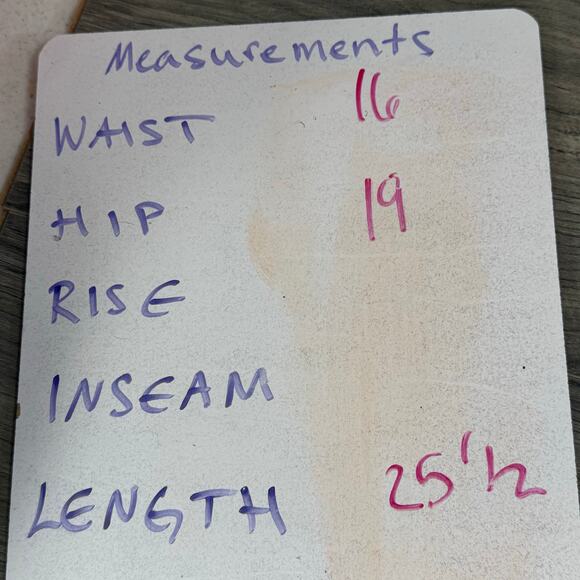 Measurements
WAIST 16
HIP 19
RISE
INSEAM
LENGTH 25 1/2